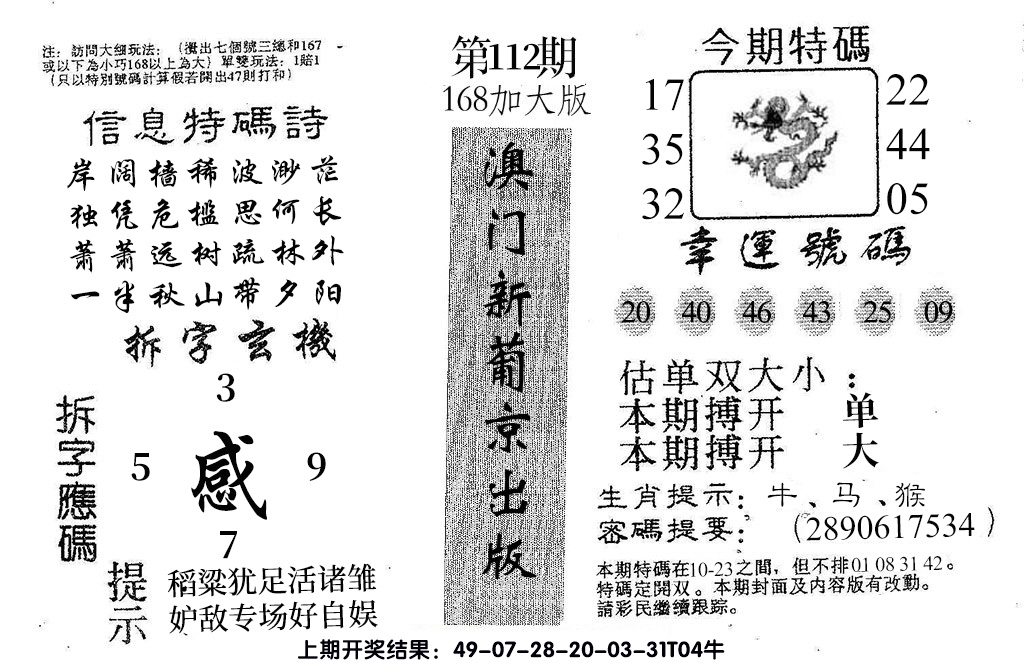 注：訪問大细玩法：（攪出七個號三總和167
或以下為小巧168以上為大）單雙玩法：1賠1
（只以特別號碼計算假若開出47則打和）
信息特碼詩
岸阔樯稀波渺茫
独凭危槛思何长
萧萧远树疏林外
一半秋山带夕阳
拆字玄機
拆字應碼
3
5 感 9
7
提示
稻粱犹足活诸雏
妒敌专场好自娱
第112期
168加大版
澳门新葡京出版
今期特碼
17 22
35 44
32 05
幸運號碼
20 40 46 43 25 09
估单双大小：
本期搏开 单
本期搏开 大
生肖提示：牛、马、猴
密碼提要：（2890617534）
本期特碼在10-23之間，但不排01 08 31 42。
特碼定開双。本期封面及内容版有改動。
請彩民繼續跟踪。
上期开奖结果：49-07-28-20-03-31T04牛